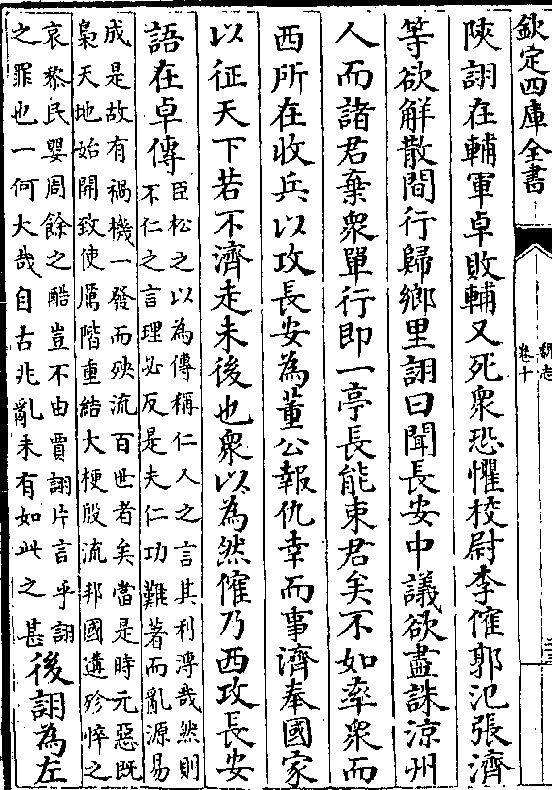 欽定四庫全書
魏志
卷十
陝詡在輔軍卓敗輔又死衆恐懼校尉李傕郭汜張濟
等欲解散間行歸鄉里詡曰聞長安中議欲盡誅涼州
人而諸君棄衆單行即一亭長能束君矣不如率衆而
西所在收兵以攻長安為董公報仇幸而事濟奉國家
以征天下若不濟走未後也衆以為然傕乃西攻長安
語在卓傳
臣松之以為傳稱仁人之言其利溥哉然則
不仁之言理必反是夫仁功難著而亂源易
成是故有禍機一發而殃流百世者矣當是時元惡既
梟天地始開致使厲階重結大梗殷流邦國遘殄悴之
哀黎民嬰周餘之酷豈不由賈詡片言乎詡
之罪也一何大哉自古兆亂未有如此之甚
後詡為左